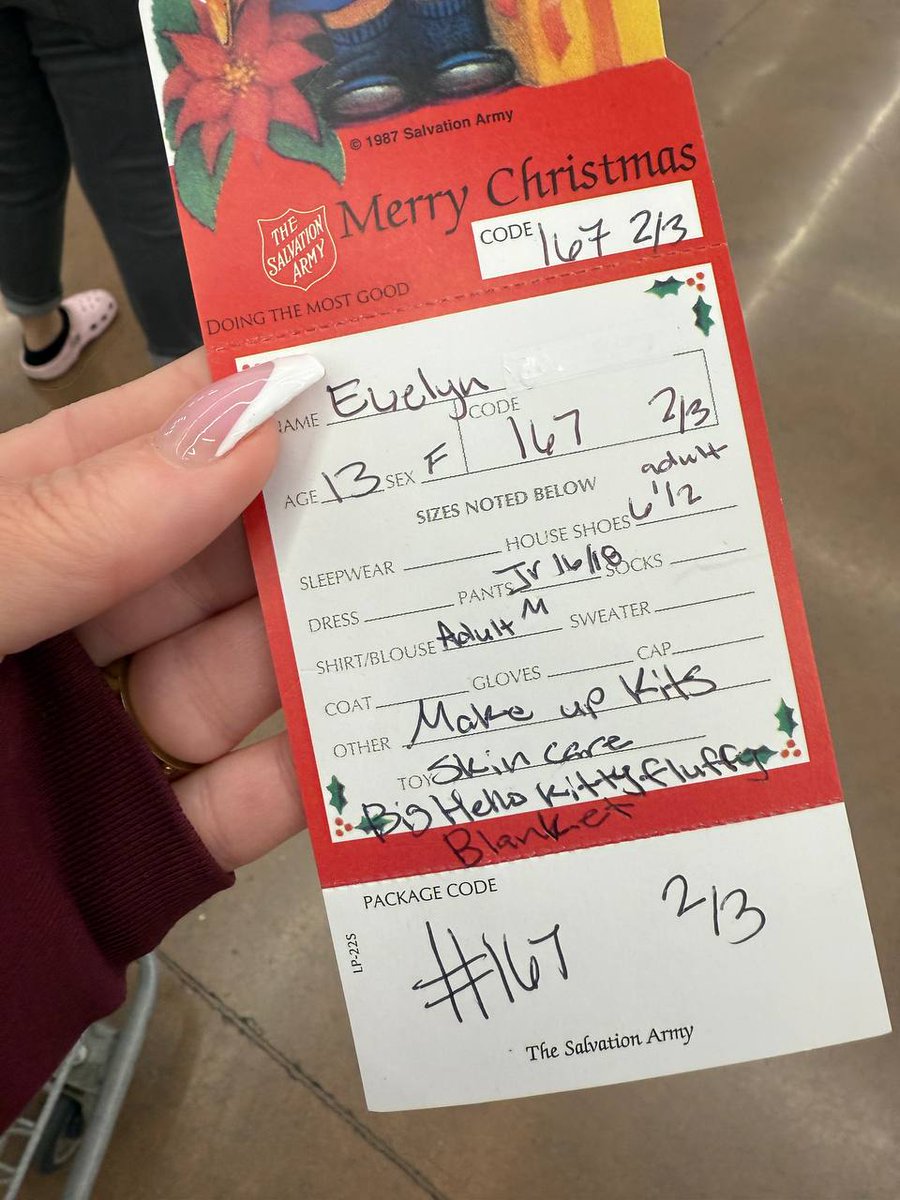 © 1987 Salvation Army
Merry Christmas
THE SALVATION ARMY
CODE 167 2/3
DOING THE MOST GOOD
NAME Evelyn
CODE 167 2/3
AGE 13 SEX F
SIZES NOTED BELOW
adult
SLEEPWEAR HOUSE SHOES 6 1/2
DRESS PANTS Jr 16/18 SOCKS
SHIRT/BLOUSE Adult M SWEATER
COAT GLOVES CAP
OTHER Make up Kits
TOY Skin care
Big Hello Kitty Fluffy
Blanket
PACKAGE CODE
#167 2/3
LP-22S
The Salvation Army